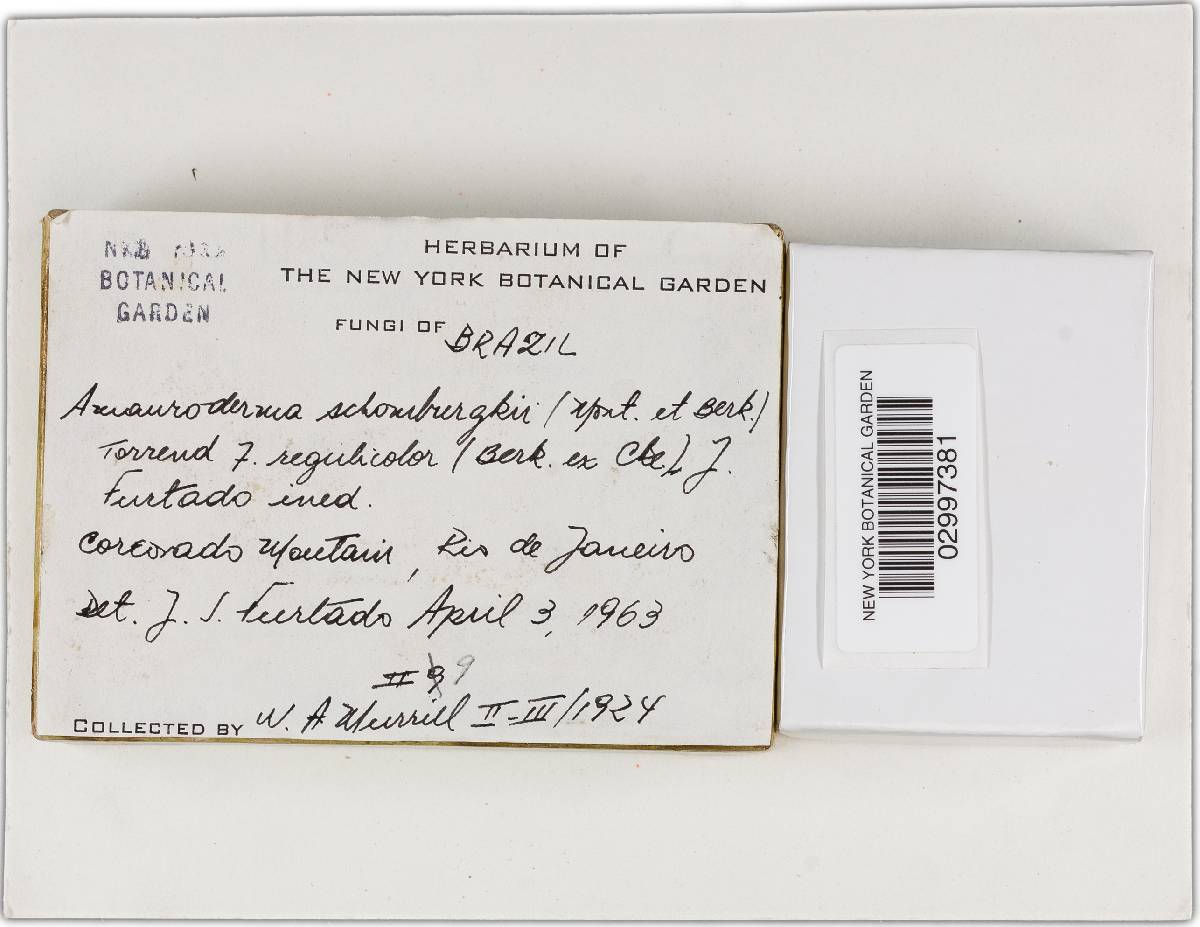 BOTANICAL
GARDEN
HERBARIUM OF
THE NEW YORK BOTANICAL GARDEN
FUNGI OF BRAZIL
Amauroderma schomburgkii (Mont. et Berk.)
Torrend f. regulicolor (Berk. ex Cke.) J.
Furtado ined.
Corcovado Mountain, Rio de Janeiro
Det. J. S. Furtado April 3, 1963
II 9
COLLECTED BY W. A. Murrill II-III/1924
NEW YORK BOTANICAL GARDEN
02997381